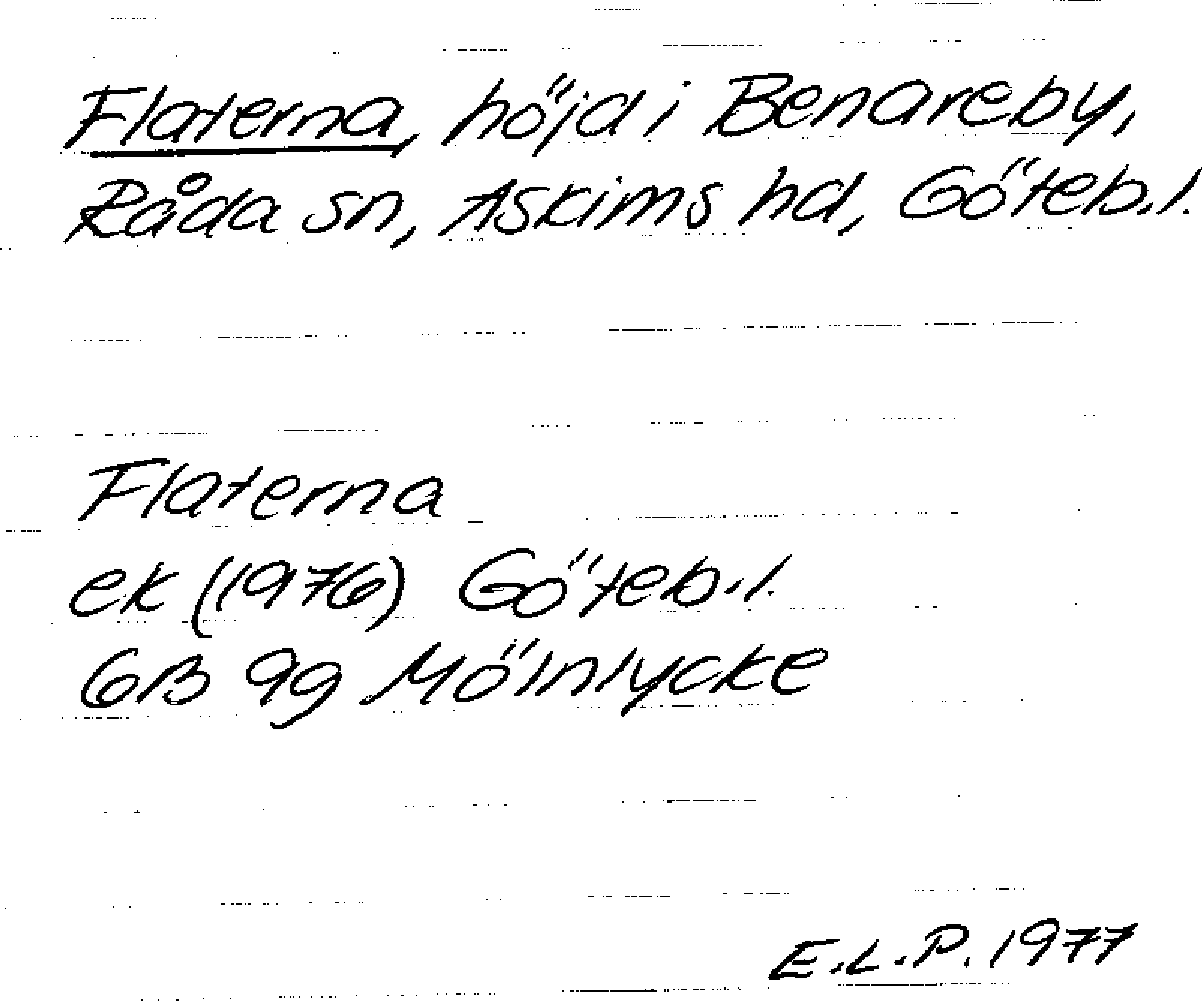 Flaterna, höjd i Benareby,
Råda sn, Askims hd, Göteb.l.
Flaterna
ek (1976) Göteb.l.
6B 9g Mölnlycke
E.L.P. 1977